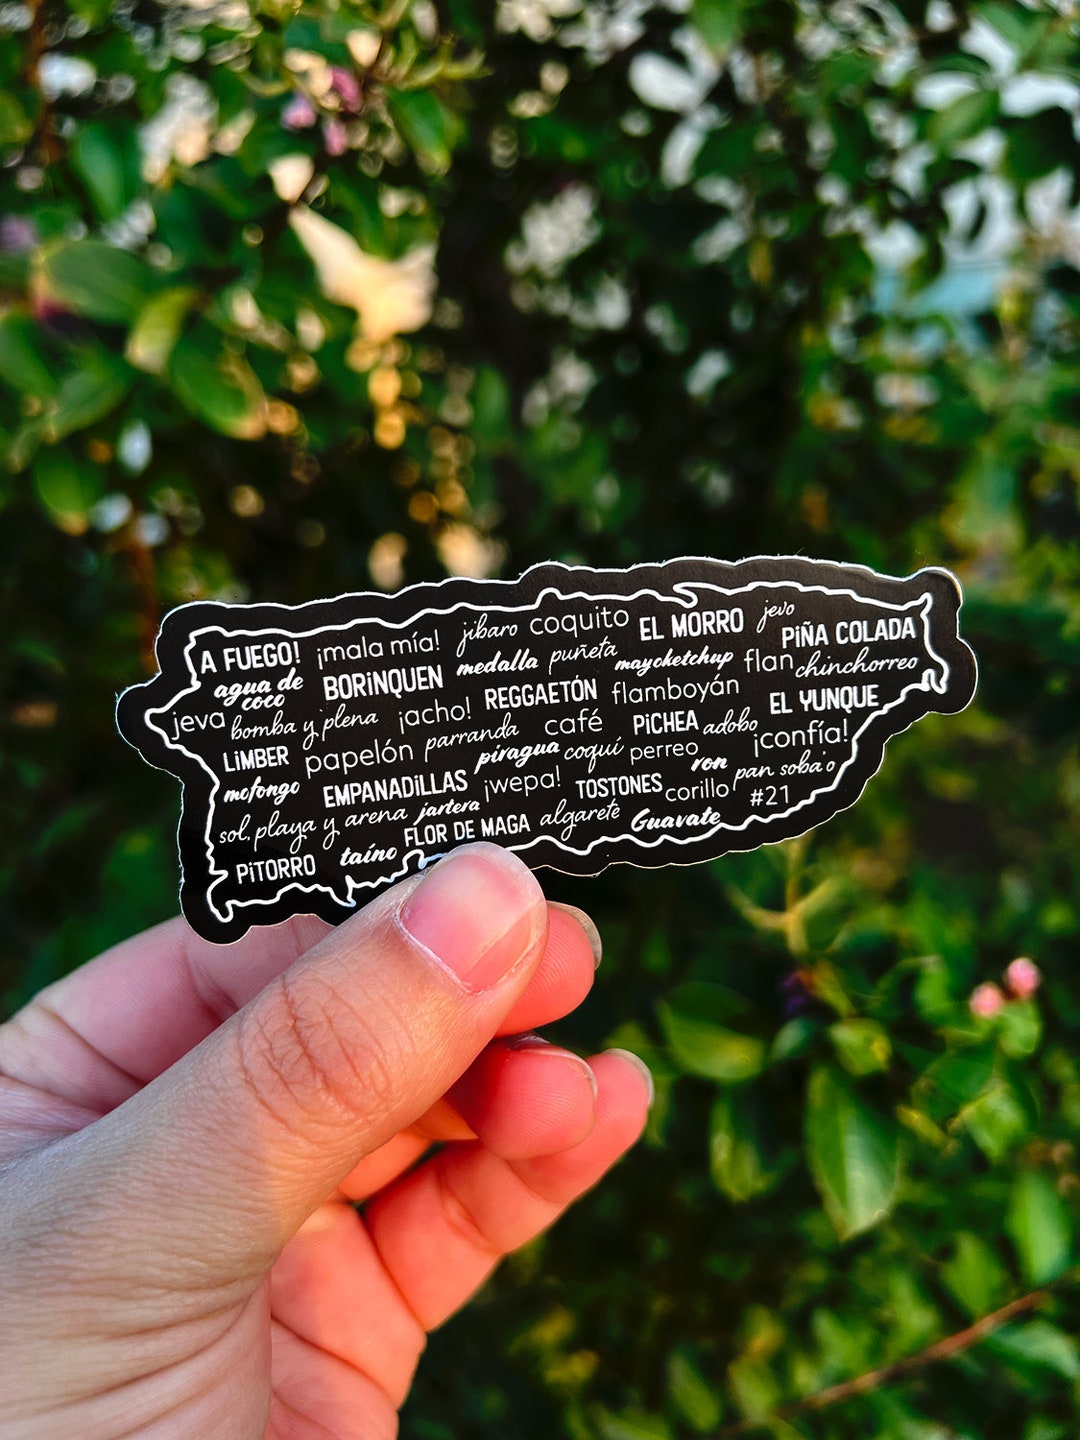 A FUEGO! ¡mala mía! jíbaro coquito EL MORRO jevo
agua de coco BORiNQUEN medalla puñeta mayoketchup flan PiÑA COLADA
jeva bomba y plena ¡acho! REGGAETÓN flamboyán chinchorreo
LiMBER papelón parranda café PiCHEA adobo EL YUNQUE
mofongo EMPANADiLLAS piragua coquí perreo ron ¡confía!
sol, playa y arena jartera ¡wepa! TOSTONES corillo pan soba'o
PiTORRO taíno FLOR DE MAGA algarete Guavate #21